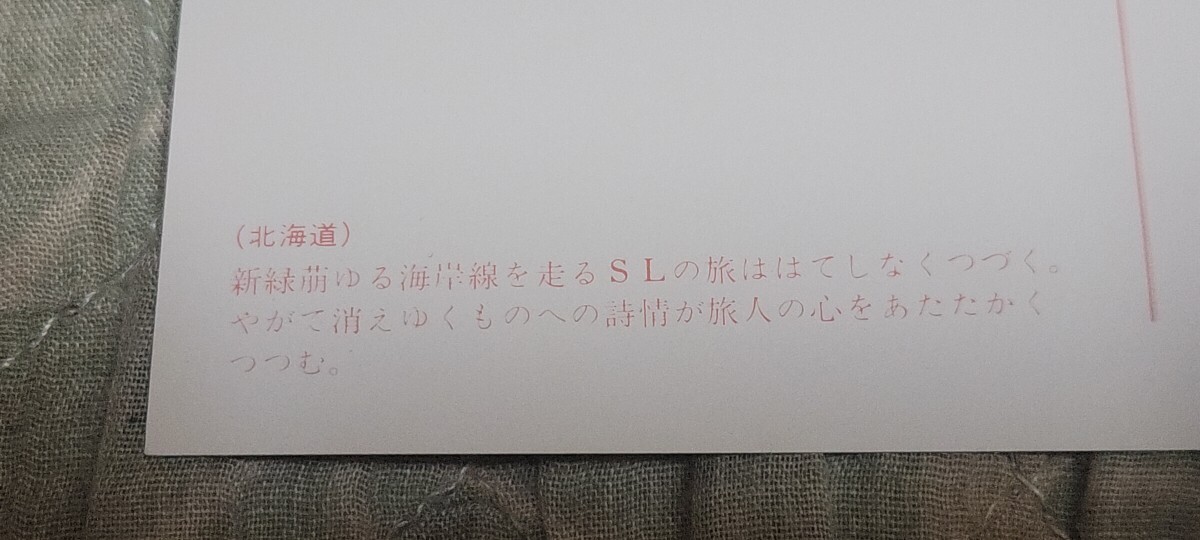 (北海道)
新緑萠ゆる海岸線を走るＳＬの旅ははてしなくつづく。
やがて消えゆくものへの詩情が旅人の心をあたたかく
つつむ。